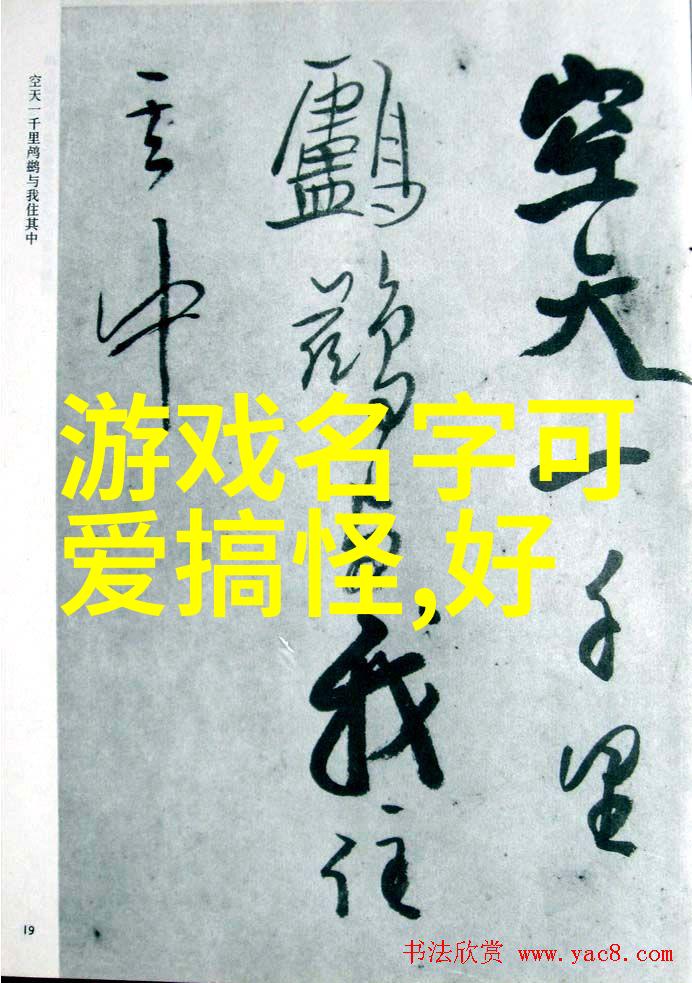 空天一千里
鸕鷀与我住
其中
空天一千里鸬鹚与我住其中
游戏名字可
爱搞怪,好
19
书法欣赏 www.yac8.com